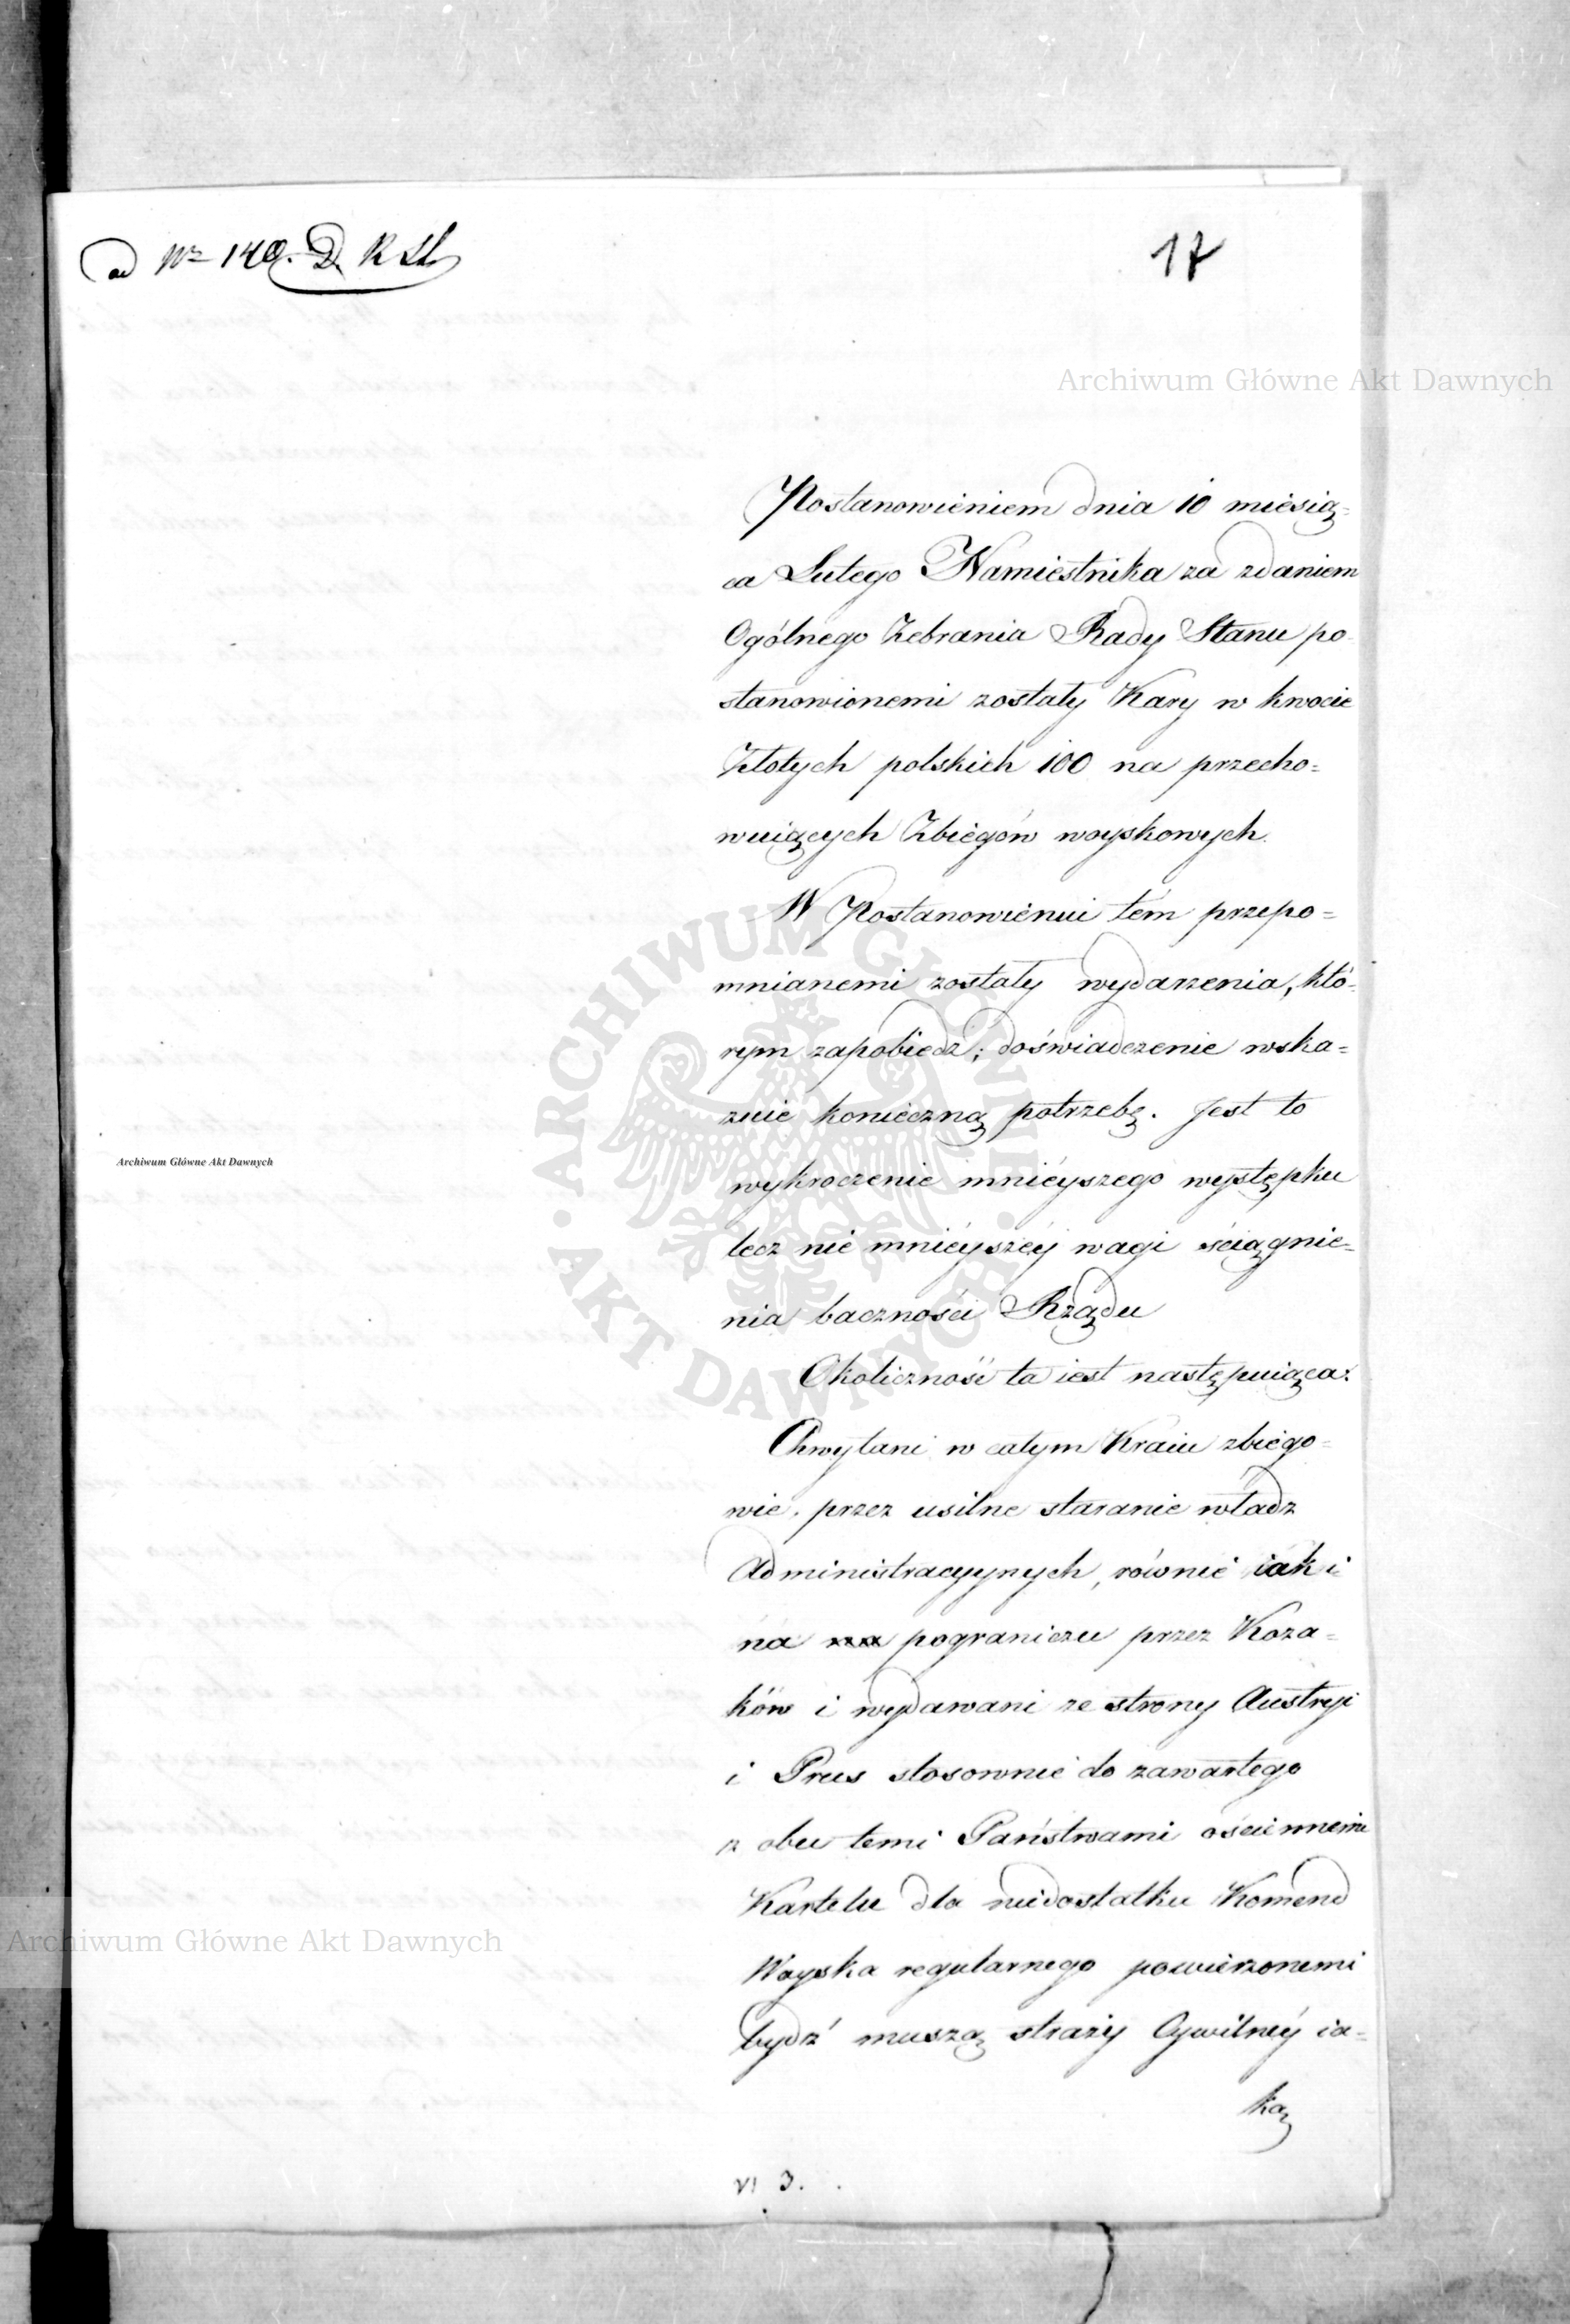 ad Nr 140. D. R St
17
Archiwum Główne Akt Dawnych
Postanowieniem dnia 10 miesią=
ca Lutego Namiestnika za zdaniem
Ogólnego Zebrania Rady Stanu po
stanowionemi zostały Kary w kwocie
Złotych polskich 100 na przecho=
wuiących Zbiegów woyskowych.
W Postanowieniu tém przepo=
mnianemi zostały wydarzenia, któ=
rym zapobiedz; doświadczenie wska=
zuie konieczną potrzebę. Jest to
wykroczenie mnieyszego występku
lecz nie mnieyszéy wagi ściągnie=
nia baczności Rządu
Okoliczność ta iest następuiąca:
Chwytani w całym Kraiu zbiego=
wie. przez usilne staranie władz
Administracyynych, równie iak i
na na pograniczu przez Koza=
ków i wydawani ze strony Austryi
i Prus stosownie do zawartego
z obu temi Państwami ościennemi
Kartelu dla niedostatku Komend
Woyska regularnego powierzonemi
bydź muszą straży Cywilnéy ia=
ką
VI 3.
ARCHIWUM GŁÓWNE
AKT DAWNYCH
Archiwum Główne Akt Dawnych
Archiwum Główne Akt Dawnych